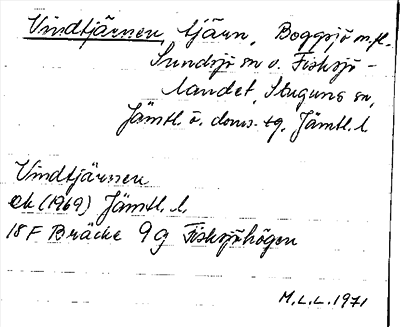 Vindtjärnen, tjärn, Boggsjö m.fl.
Sundsjö sn o. Fisksjö-
landet, Stuguns sn,
Jämtl. ö. doms. tg, Jämtl. l
Vindtjärnen
ek (1969) Jämtl. l.
18F Bräcke 9g Fisksjöhögen
M.L.L. 1971